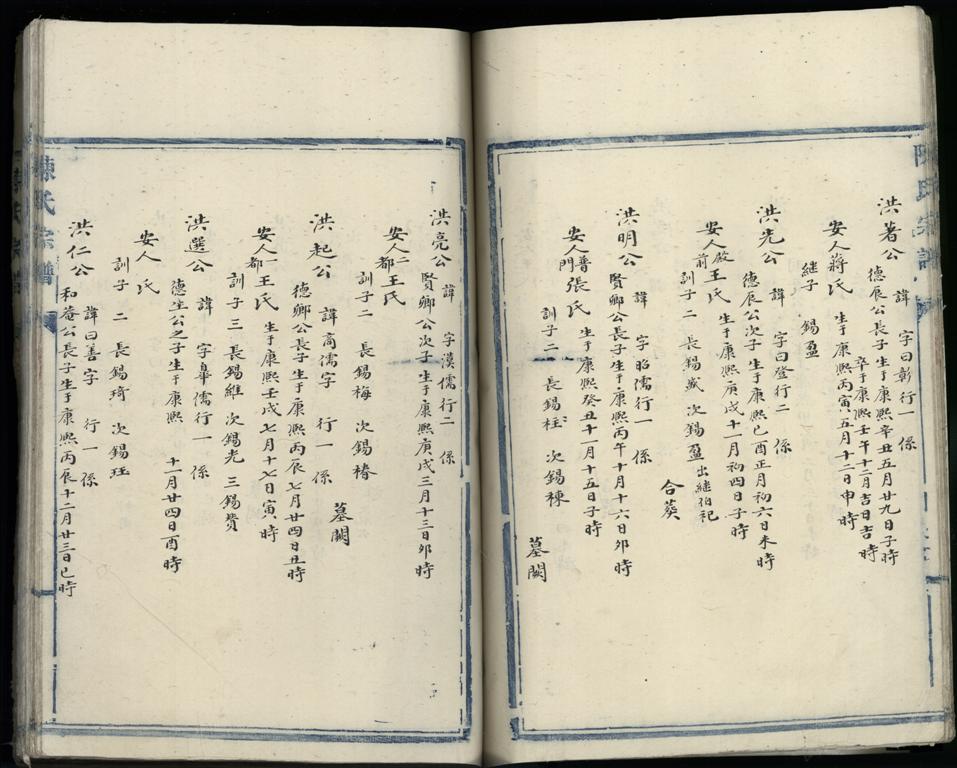 陳氏宗譜
洪著公
諱 字曰彰行一 係
德辰公長子生于康熙辛丑五月廿九日子時
卒于康熙壬午十二月吉日吉時
安人蔣氏 生于康熙丙寅五月十二日申時
繼子 錫盈
洪先公
諱 字曰登行二 係
德辰公次子生于康熙己酉正月初六日未時
安人殿前王氏 生于康熙庚戌十一月初四日子時
訓子二 長錫盛 次錫盈出繼伯記
合葬
洪明公
諱 字昭儒行一 係
賢卿公長子生于康熙丙午十月十六日卯時
安人普門張氏 生于康熙癸丑十一月十五日子時
訓子二 長錫柱 次錫棟
墓闕
洪亮公
諱 字漢儒行二 係
賢卿公次子生于康熙庚戌三月十三日卯時
安人二都王氏
訓子二 長錫梅 次錫椿
墓闕
洪起公
諱商儒字 行一 係
德卿公長子生于康熙丙辰七月廿四日丑時
安人一都王氏 生于康熙壬戌七月十七日寅時
訓子三 長錫維 次錫光 三錫贊
洪選公
諱 字皐儒行一 係
德生公之子生于康熙 十一月廿四日酉時
安人 氏
訓子 二 長錫琦 次錫珏
洪仁公
諱曰善字 行一 係
和菴公長子生于康熙丙辰十二月廿三日巳時
陳氏宗譜